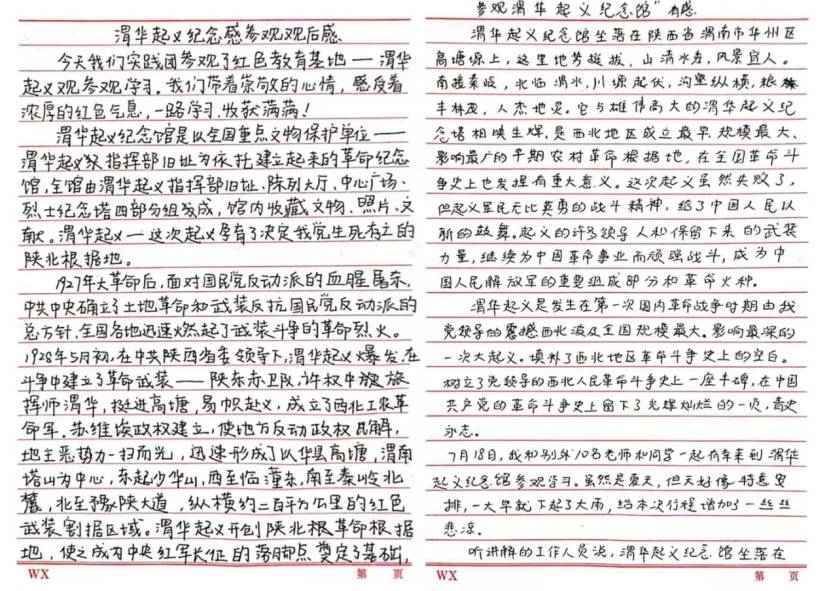 渭华起义纪念感参观观后感
今天我们实践团参观了红色教育基地——渭华
起义观参观学习。我们带着崇敬的心情，感受着
浓厚的红色气息，一路学习，收获满满！
渭华起义纪念馆是以全国重点文物保护单位——
渭华起义 指挥部旧址为依托建立起来的革命纪念
馆，全馆由渭华起义指挥部旧址、陈列大厅、中心广场、
烈士纪念塔四部分组成，馆内收藏文物、照片、文
献。渭华起义——这次起义孕育了决定我党生死存立的
陕北根据地。
1927年大革命后，面对国民党反动派的血腥屠杀，
中共中央确立了土地革命和武装反抗国民党反动派的
总方针，全国各地迅速燃起了武装斗争的革命烈火。
1928年5月初，在中共陕西省委领导下，渭华起义爆发，在
斗争中建立了革命武装——陕东赤卫队，许权中旅
挥师渭华，挺进高塘，易帜起义，成立了西北工农革
命军。苏维埃政权建立，使地方反动政权瓦解，
地主恶势力一扫而光，迅速形成了以华县高塘，渭南
塔山为中心，东起少华山，西至临潼东，南至秦岭北
麓，北至豫陕大道，纵横约二百平方公里的红色
武装割据区域。渭华起义开创陕北根革命根据
地，使之成为中央红军长征的落脚点奠定了基础，
WX 第 页
参观渭华起义纪念馆"有感
渭华起义纪念馆坐落在陕西省渭南市华州区
高塘塬上，这里地势挺拔，山清水秀，风景宜人。
南接秦岭，北临渭水，川塬起伏，沟壑纵横，粮
丰林茂，人杰地灵。它与雄伟高大的渭华起义纪
念塔相映生辉，是西北地区成立最早、规模最大、
影响最广的早期农村革命根据地，在全国革命斗
争史上也发挥有重大意义。这次起义虽然失败了，
但起义军民无比英勇的战斗精神，给了中国人民以
新的鼓舞。起义的许多领导人和保留下来的武装
力量，继续为中国革命事业而顽强战斗，成为中
国人民解放军的重要组成部分和革命火种。
渭华起义是发生在第一次国内革命战争时期由我
党领导的震撼西北波及全国规模最大、影响最深的
一次大起义。填补了西北地区革命斗争史上的空白。
树立了党领导的西北人民革命斗争史上一座丰碑，在中国
共产党的革命斗争史上留下了光辉灿烂的一页，青史
永志。
7月18日，我和别外10名老师和同学一起有幸来到渭华
起义纪念馆参观学习。虽然是夏天，但天好像特意安
排，一大早就下起了大雨，给本次行程增加了一丝丝
悲凉。
听讲解的工作人员说，渭华起义纪念馆坐落在
WX 第 页